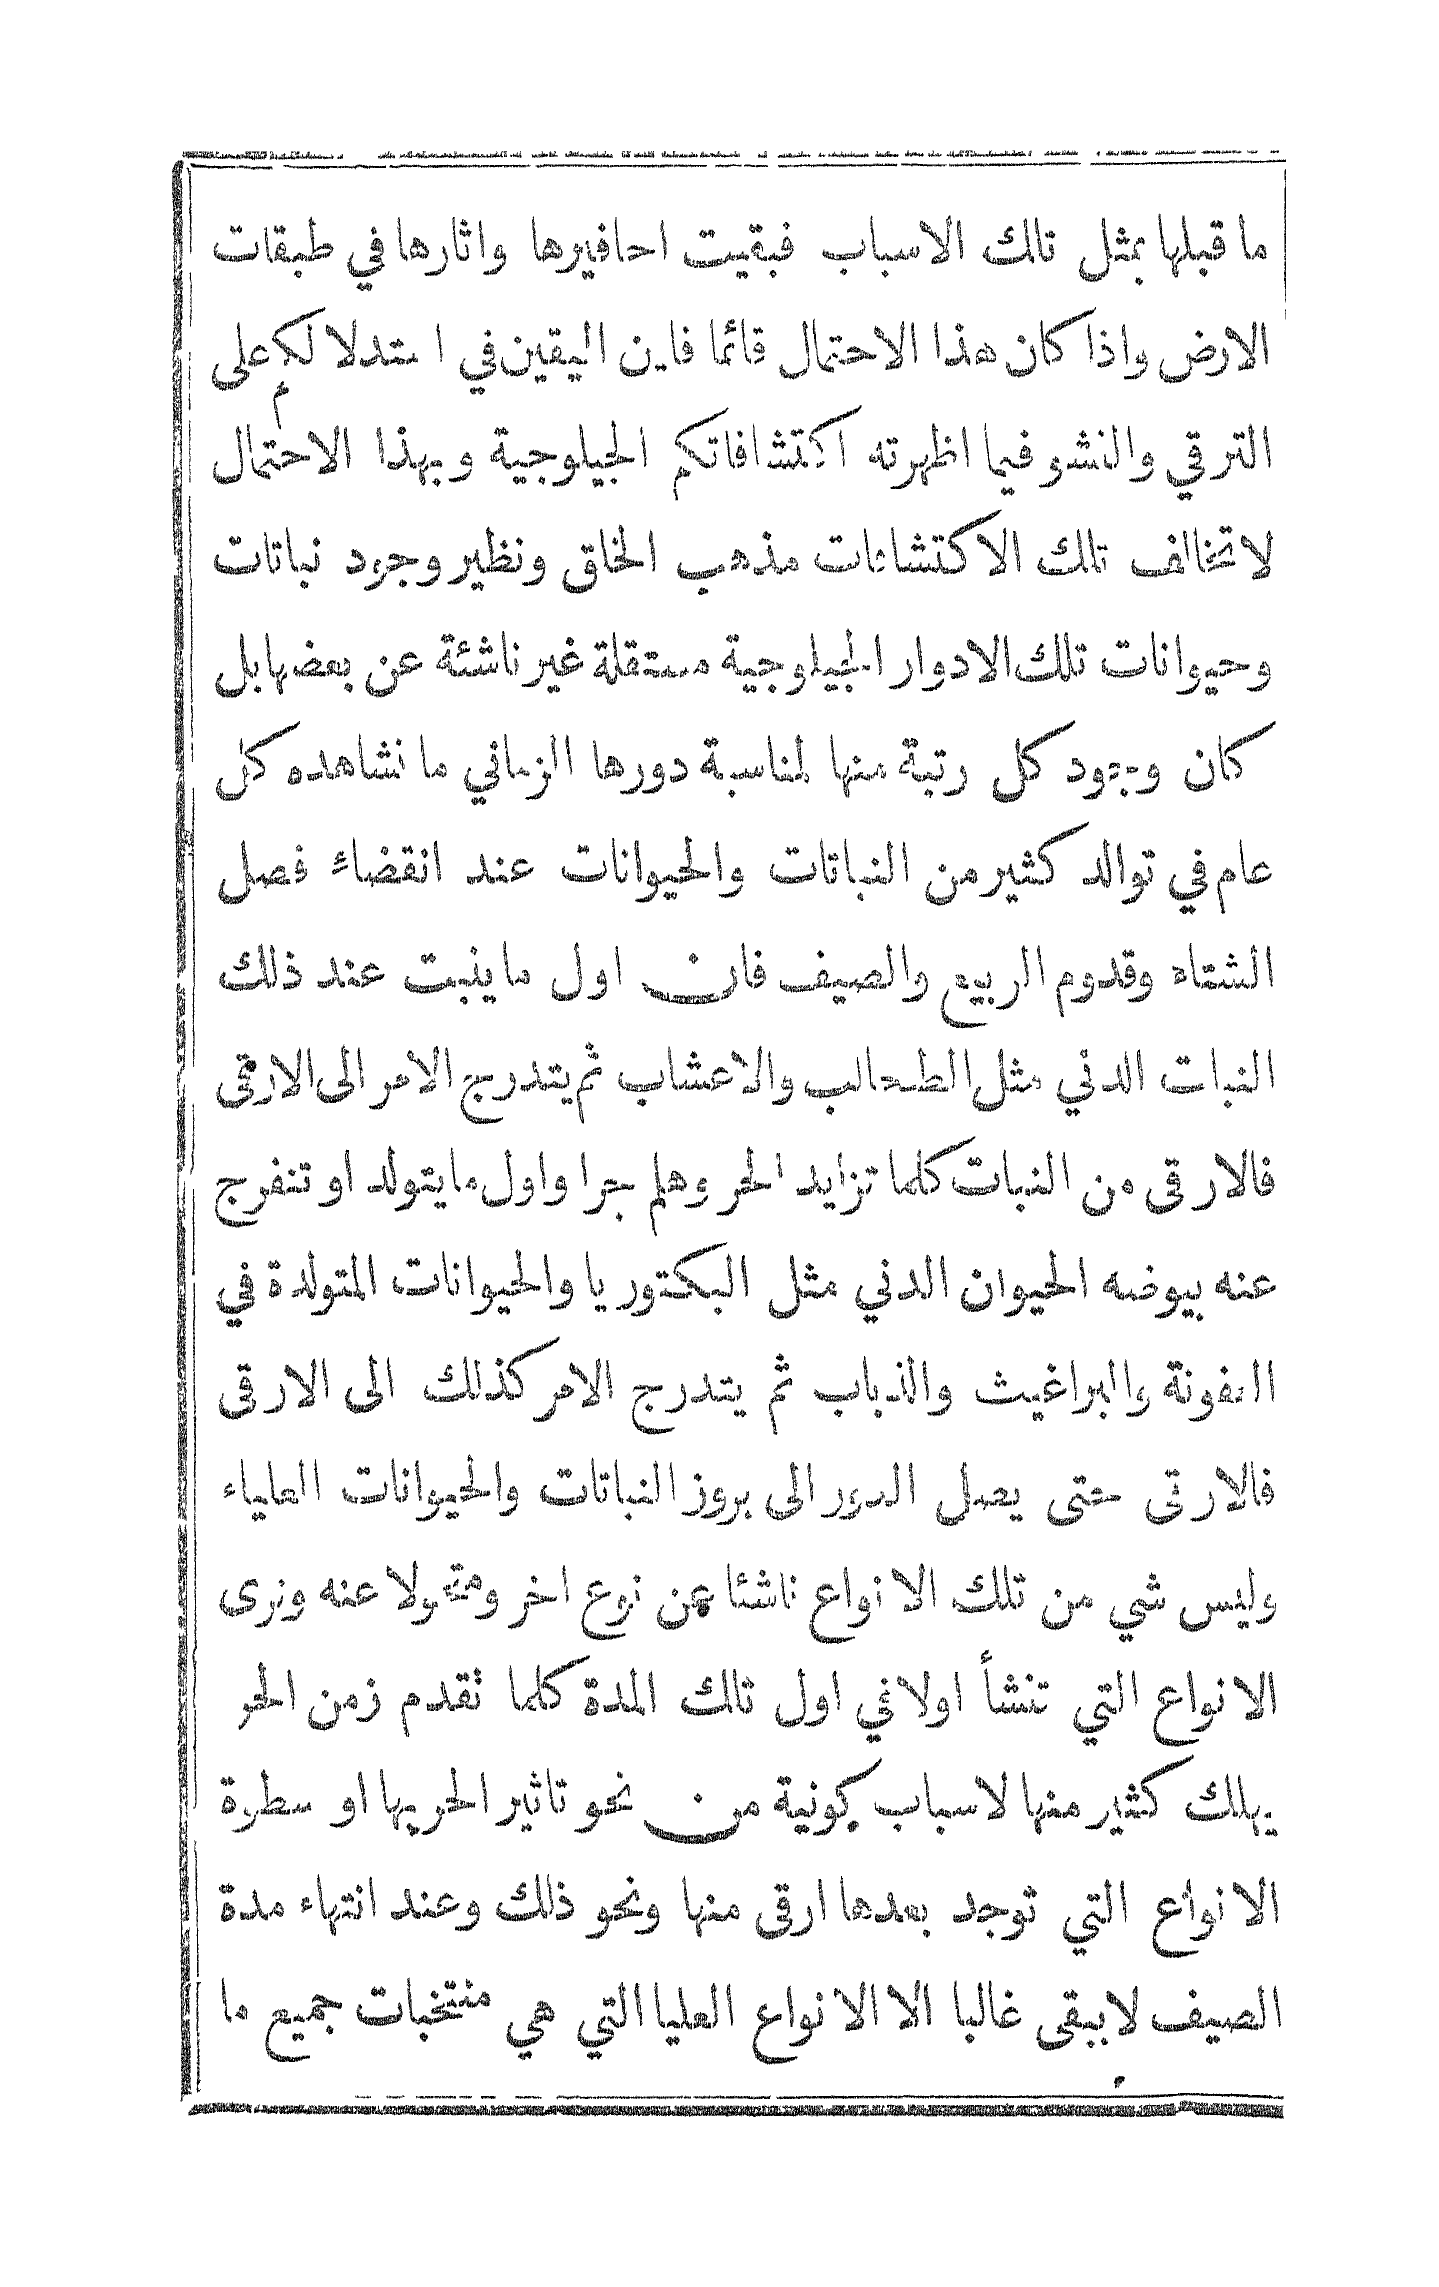 ما قبلها بمثل تلك الاسباب فبقيت احافيرها واثارها في طبقات
الارض واذا كان هذا الاحتمال قائما فاين اليقين في استدلالكم على
الترقي والنشو فيما اظهرته اكتشافاتكم الجيلوجية وبهذا الاحتمال
لا تخالف تلك الاكتشافات مذهب الخلق ونظير وجود نباتات
وحيوانات تلك الادوار الجيلوجية مستقلة غير ناشئة عن بعضها بل
كان وجود كل رتبة منها لمناسبة دورها الزماني ما نشاهده كل
عام في توالد كثير من النباتات والحيوانات عند انقضاء فصل
الشتاء وقدوم الربيع والصيف فان اول ما ينبت عند ذلك
النبات الدني مثل الطحالب والاعشاب ثم يتدرج الامر الى الارقى
فالارقى من النبات كلما تزايد الحر وهلم جرا واول ما يتولد او تنفرج
عنه بيوضه الحيوان الدني مثل البكتوريا والحيوانات المتولدة في
العفونة والبراغيث والذباب ثم يتدرج الامر كذلك الى الارقى
فالارقى حتى يصل الدور الى بروز النباتات والحيوانات العلياء
وليس شي من تلك الانواع ناشئا عن نوع اخر ومتحولا عنه ونرى
الانواع التي تنشأ اولا في اول تلك المدة كلما تقدم زمن الحر
يهلك كثير منها لاسباب كونية من نحو تاثير الحر بها او سطوة
الانواع التي توجد بعدها ارقى منها ونحو ذلك وعند انتهاء مدة
الصيف لا يبقى غالبا الا الانواع العليا التي هي منتخبات جميع ما